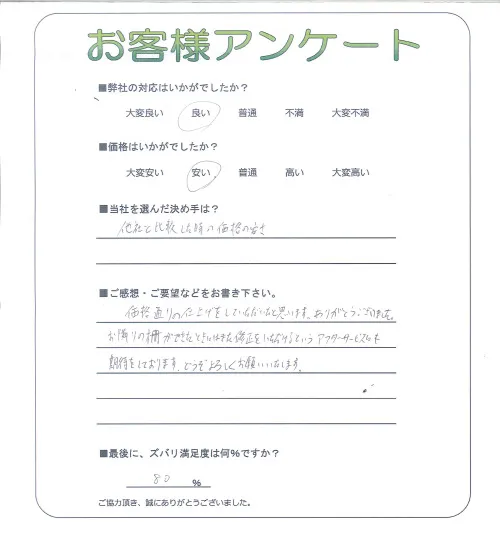 お客様アンケート
■弊社の対応はいかがでしたか？
大変良い 良い 普通 不満 大変不満
■価格はいかがでしたか？
大変安い 安い 普通 高い 大変高い
■当社を選んだ決め手は？
他社と比較した時の価格の安さ
■ご感想・ご要望などをお書き下さい。
価格通りの仕上げをしていただいたと思います。ありがとうございました。
お隣りの柵ができたときにはまた修正をいただけるというアフターサービスにも
期待をしております。どうぞよろしくお願いいたします。
■最後に、ズバリ満足度は何％ですか？
80 ％
ご協力頂き、誠にありがとうございました。